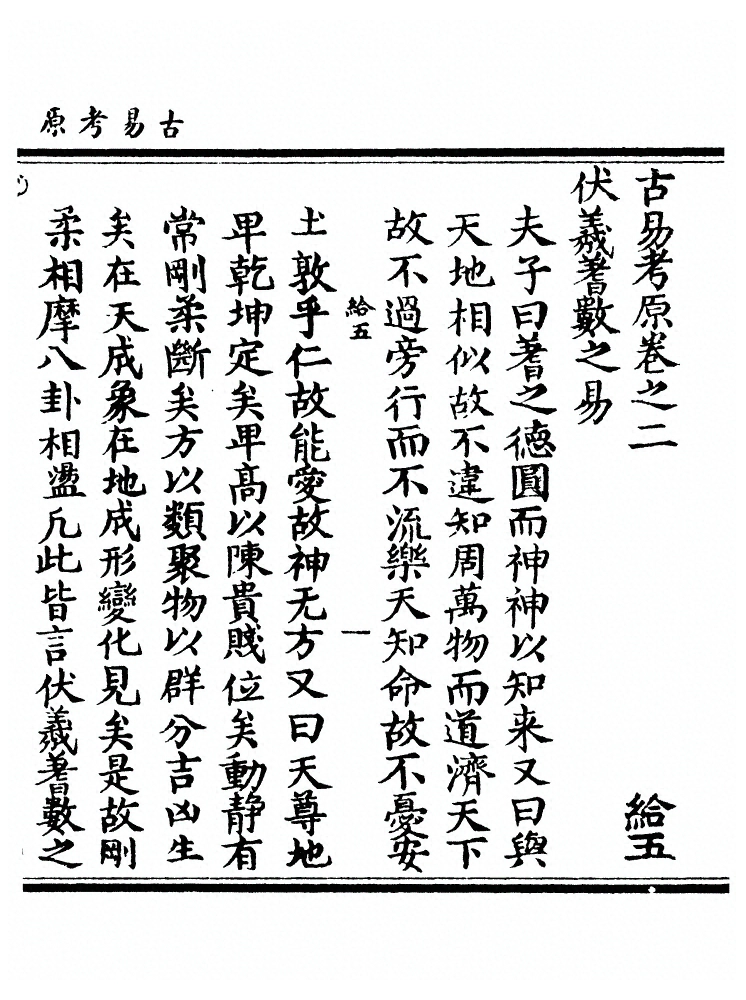 古易考原
古易考原卷之二
給五
伏羲蓍數之易
夫子曰蓍之德圓而神神以知来又曰與
天地相似故不違知周萬物而道濟天下
故不過旁行而不流樂天知命故不憂安
給五
一
土敦乎仁故能愛故神无方又曰天尊地
卑乾坤定矣卑高以陳貴賤位矣動静有
常剛柔斷矣方以類聚物以群分吉凶生
矣在天成象在地成形變化見矣是故剛
柔相摩八卦相盪凡此皆言伏羲蓍數之